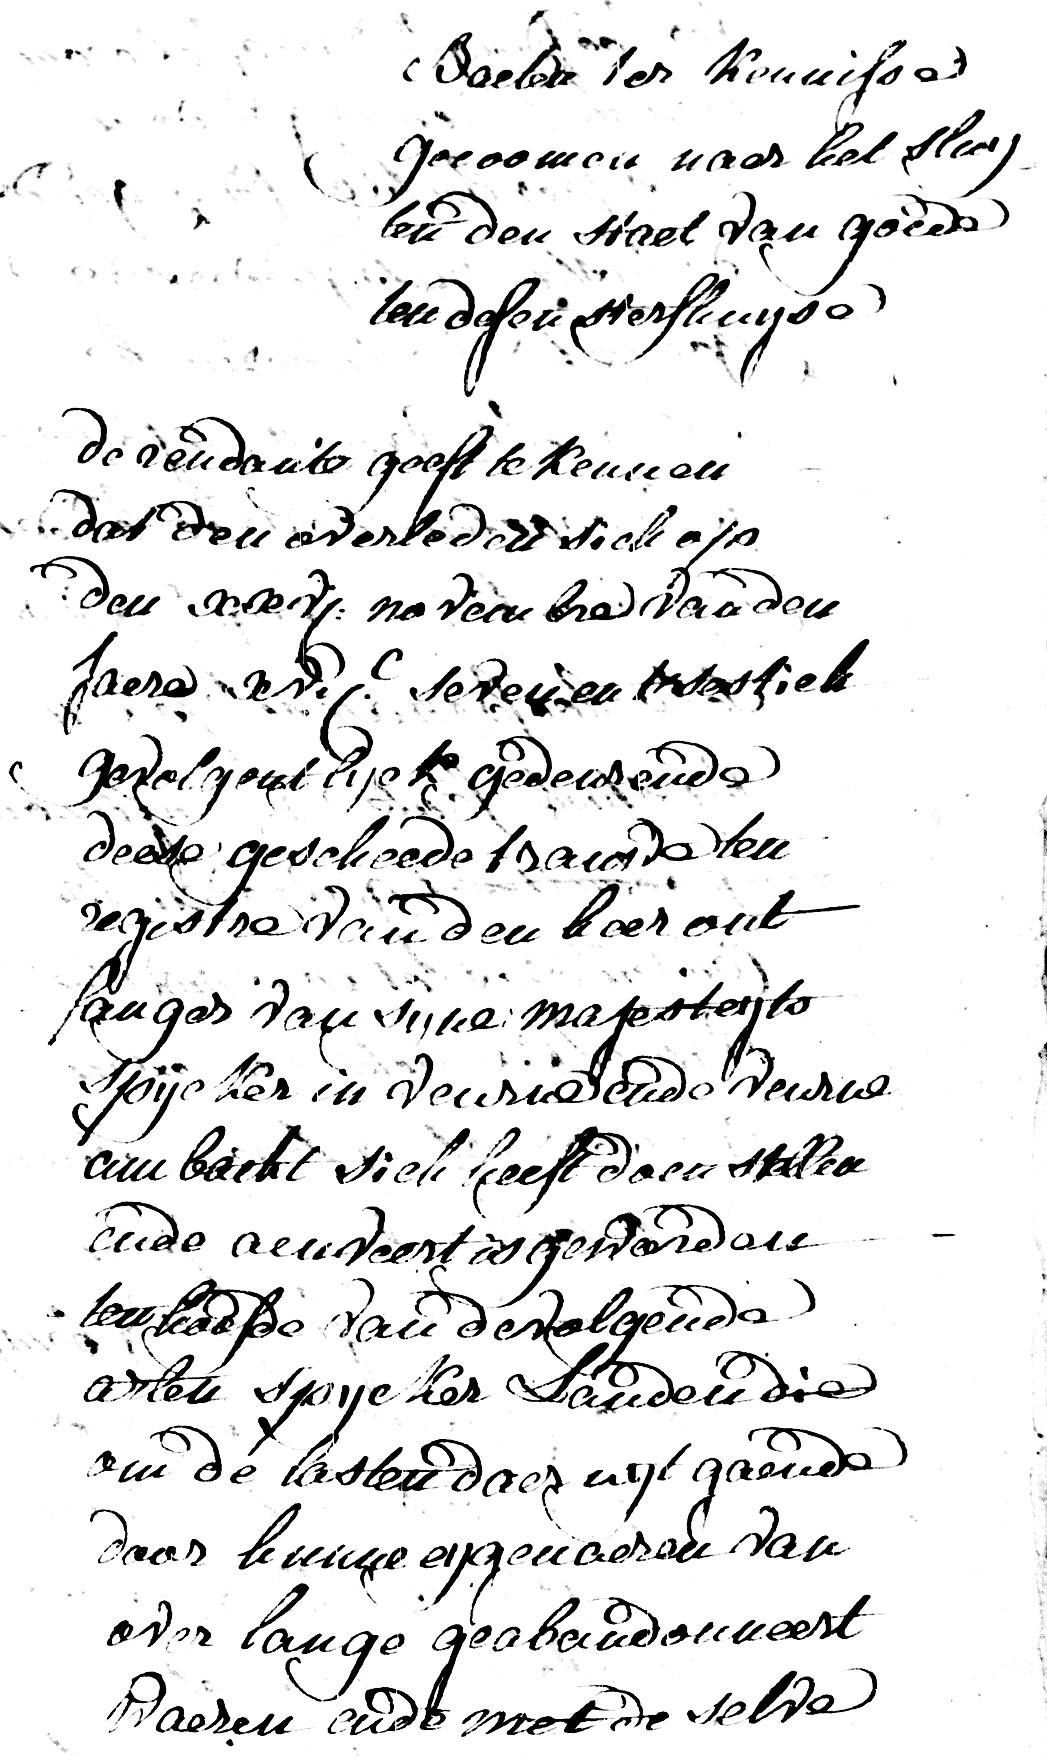 Baeten ter kennisse
gecoomen naer het sluij
ten den staet van goede
ten desen sterfhuijse
de rendante geeft te kennen
dat den overleden sich op
den xxvij. novembre van den
jaere xvij.c sevenentsestich
gevolgentlyck geduerende
dese gescheede trauwe ten
registre van den heer ont
fanger van syne majesteyts
spijcker in veurne ende veurne
ambacht sich heeft doen stellen
ende aenveert is geworden
ten hoofde van de volgende
acten spijcker landen die
om de lasten daer uyt gaende
door hunne eygenaeren van
over lange geabandonneert
waeren ende met de selve